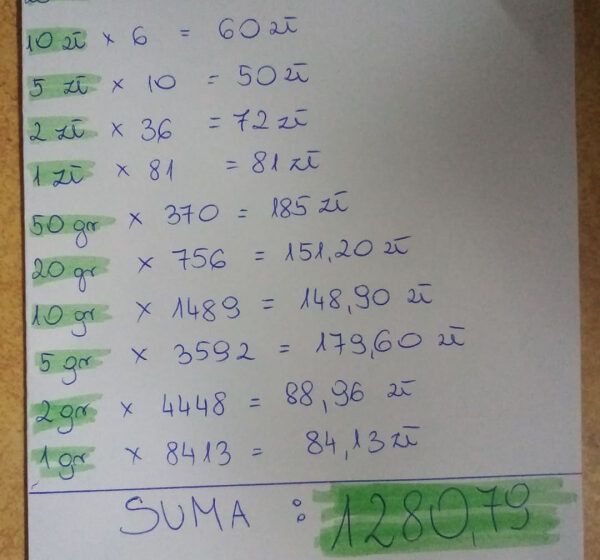 10 zł × 6 = 60 zł
5 zł × 10 = 50 zł
2 zł × 36 = 72 zł
1 zł × 81 = 81 zł
50 gr × 370 = 185 zł
20 gr × 756 = 151,20 zł
10 gr × 1489 = 148,90 zł
5 gr × 3592 = 179,60 zł
2 gr × 4448 = 88,96 zł
1 gr × 8413 = 84,13 zł
SUMA : 1280,79